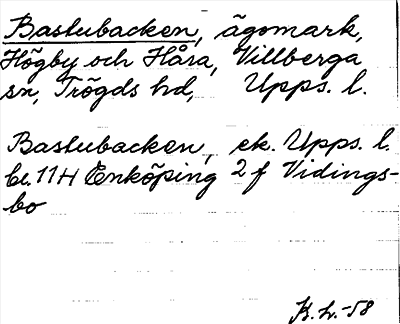 Bastubacken, ägomark,
Högby och Håra, Villberga
sn, Trögds hd, Upps. l.
Bastubacken, ek. Upps. l.
bl. 11H Enköping 2 f Vidings-
bo
K.L.-58